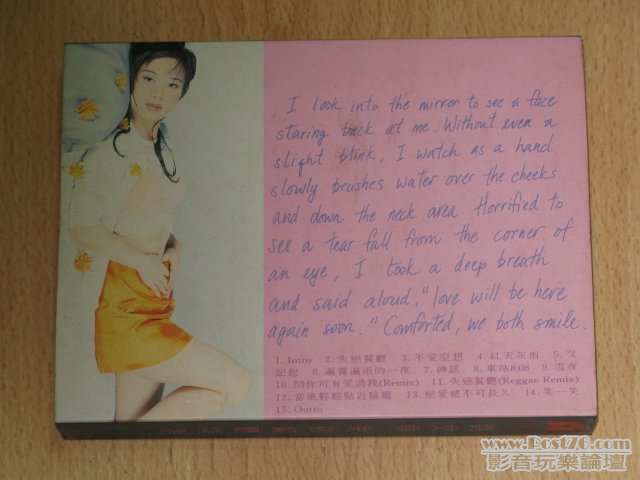 I look into the mirror to see a face
staring back at me. Without even a
slight blink, I watch as a hand
slowly brushes water over the cheeks
and down the neck area. Horrified to
see a tear fall from the corner of
an eye, I took a deep breath
and said aloud, "love will be here
again soon." Comforted, we both smile.
1. Intro 2. 失戀餐廳 3. 不愛空想 4. 紅天灰雨 5. 又
記起 6. 遍霧遍雨的一夜 7. 神話 8. 車站8:08 9. 雪夜
10. 問你可有愛過我(Remix) 11. 失戀餐廳(Reggae Remix)
12. 當風輕輕貼近臉龐 13. 戀愛總不可長久 14. 笑一笑
15. Outro
www.Post76.com
影音玩樂論壇